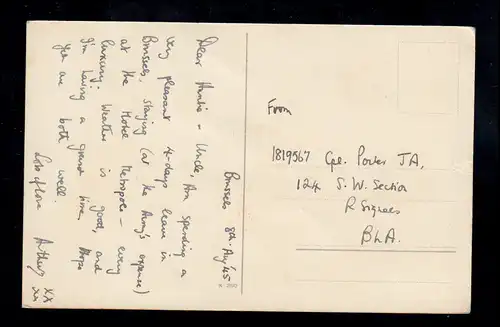 Brussels 8th. Aug '45
Dear Auntie - Uncle, Am spending a
very pleasant 4-days leave in
Brussels. Staying (at the Army's expense)
at the Hotel Metropole - every
luxury! Weather is good, and
I'm having a grand time. Hope
you are both well.
Lots of love Arthur xx
xx
From
1819567 Cpl. Porter JA,
124 S.W. Section
R Signals
BLA.